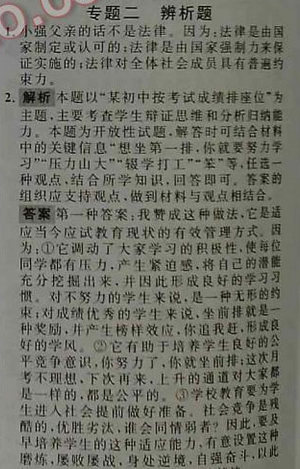 专题二 辨析题
1. 小强父亲的话不是法律。因为:法律是由国
家制定或认可的;法律是由国家强制力来保
证实施的;法律对全体社会成员具有普遍约
束力。
2. 解析 本题以“某初中按考试成绩排座位”为
主题,主要考查学生辩证思维和分析归纳能
力。本题为开放性试题,解答时可结合材料
中的关键信息“想坐第一排,你就要努力学
习”“压力山大”“辍学打工”“笨”等,任选一
种观点,结合所学知识,回答即可。答案的
组织应支持观点,做到材料与观点相结合。
答案 第一种答案:我赞成这种做法,它是适
应当今应试教育现状的有效管理方式。因
为:①它调动了大家学习的积极性,使每位
同学都有压力,产生紧迫感,将自己的潜能
充分挖掘出来,并因此形成良好的学习习
惯。对不努力的学生来说,是一种无形的约
束;对成绩优秀的学生来说,坐前排就是一
种奖励,并产生榜样效应,你追我赶,形成良
好的学风。②它有助于培养学生良好的公
平竞争意识,你努力了,你就坐前排;这次月
考不理想,下次再来,上升的通道对大家都
是一样的,都是公平的。③学校教育要为学
生进入社会提前做好准备。社会竞争是残
酷的,优胜劣汰,谁会同情弱者?因此,要及
早培养学生的这种适应能力,有意设置这种
磨炼,屡败屡战,身处逆境,自强奋斗,以此